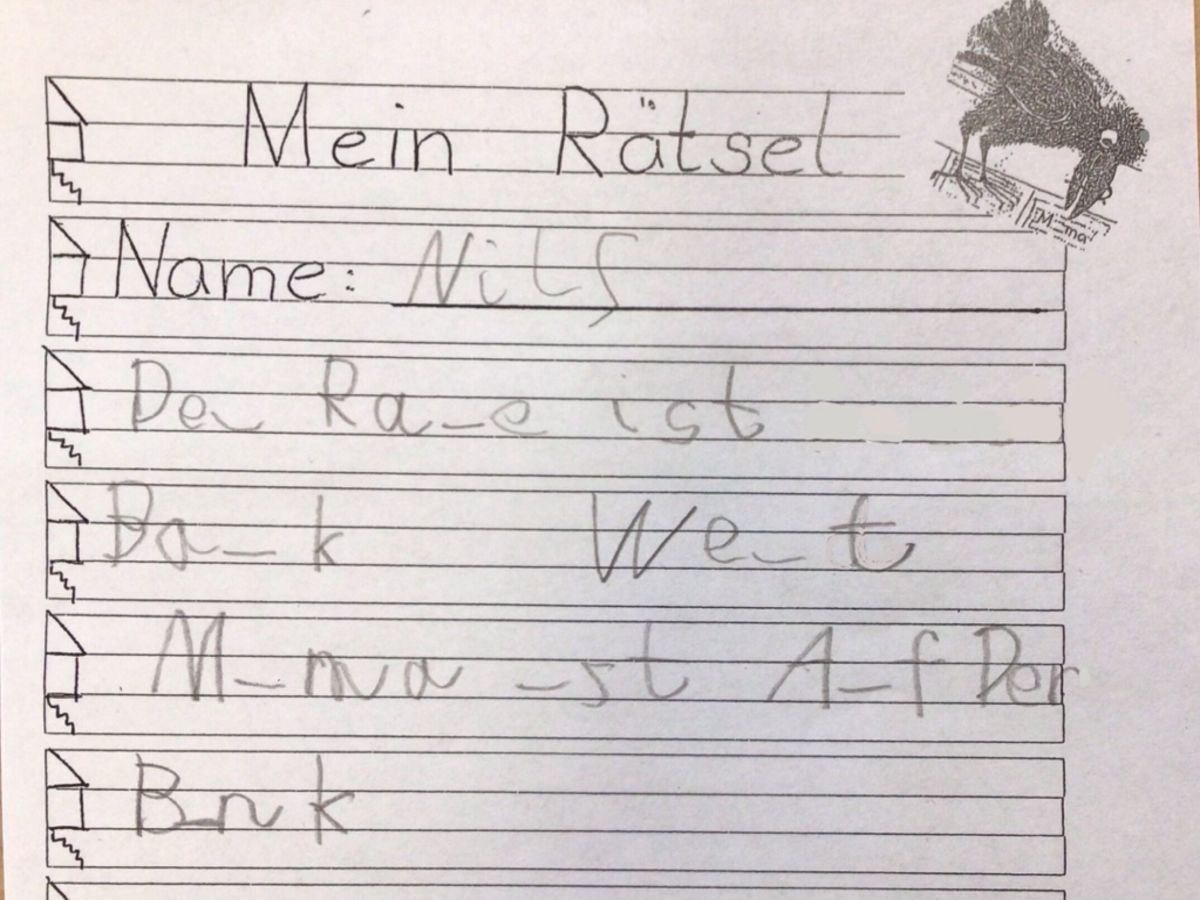 Mein Rätsel
M_ma
Name: Nils
De_ Ra_e ist
Ba_k We_t
M_ma _st A_f Der
B_nk